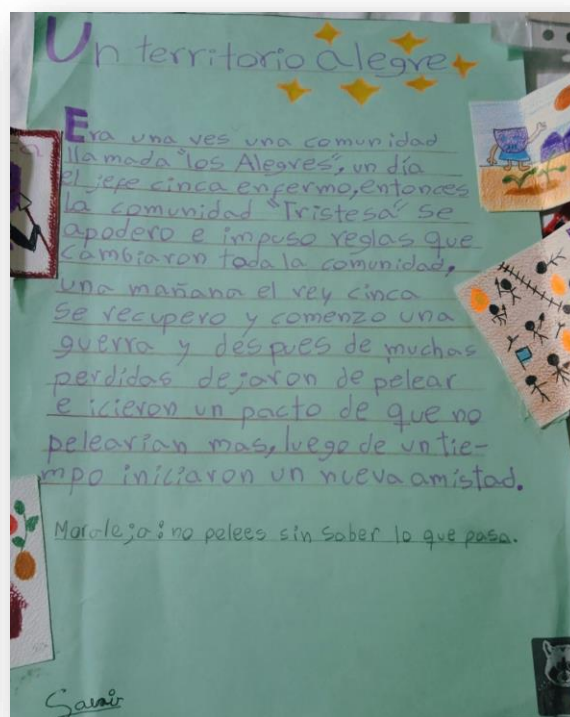 Un territorio alegre
Era una ves una comunidad
llamada "los Alegres", un día
el jefe cinca enfermo, entonces
la comunidad "Tristesa" se
apodero e impuso reglas que
cambiaron toda la comunidad,
una mañana el rey cinca
se recupero y comenzo una
guerra y despues de muchas
perdidas dejaron de pelear
e icieron un pacto de que no
pelearian mas, luego de un tie-
mpo iniciaron un nueva amistad.
Moraleja: no pelees sin saber lo que pasa.